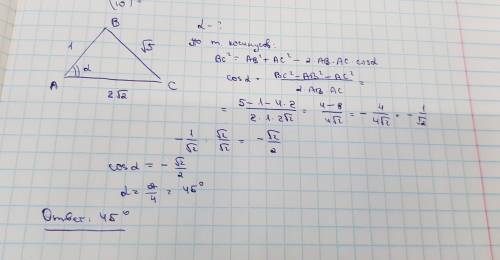 (10)
B
α - ?
1
√5
α
A
C
2√2
По т. косинусов:
BC² = AB² + AC² - 2 AB · AC · cosα
cosα = (BC² - AB² - AC²) / (2 AB · AC) =
= (5 - 1 - 4 · 2) / (2 · 1 · 2√2) = (4 - 8) / (4√2) = - 4 / (4√2) = - 1 / √2
- 1/√2 · √2/√2 = - √2/2
cosα = - √2/2
α = π/4 = 45°
Ответ: 45°